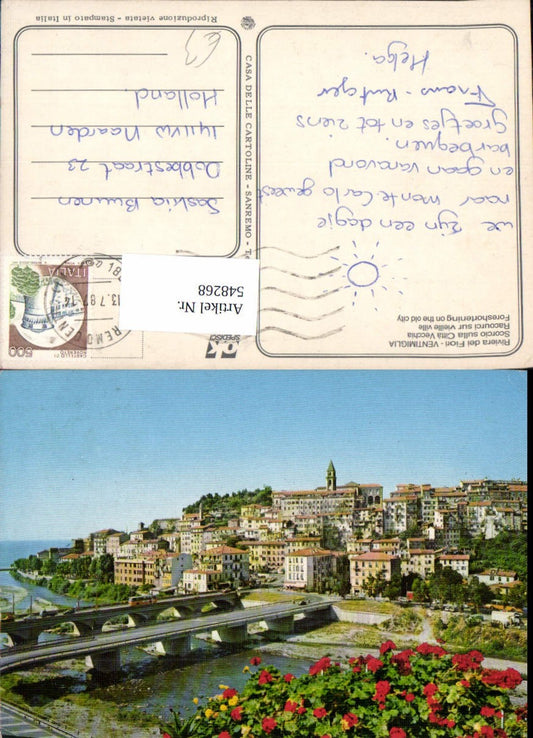 Riviera dei Fiori - VENTIMIGLIA
Scorcio sulla Città Vecchia
Raccourci sur vieille ville
Foreshortening on the old city
we zijn een dagje
naar Monte Carlo geweest
en gaan vanavond
barbequen.
groetjes en tot ziens
Frans - Rutger
Helga.
CASA DELLE CARTOLINE - SANREMO - T
500
ITALIA
13.7.87-14
SPEDISCI
Artikel Nr.
548268
Saskia Buunen
Dobbestraat 23
1411VW Naarden
Holland.
€3
Riproduzione vietata - Stampato in Italia